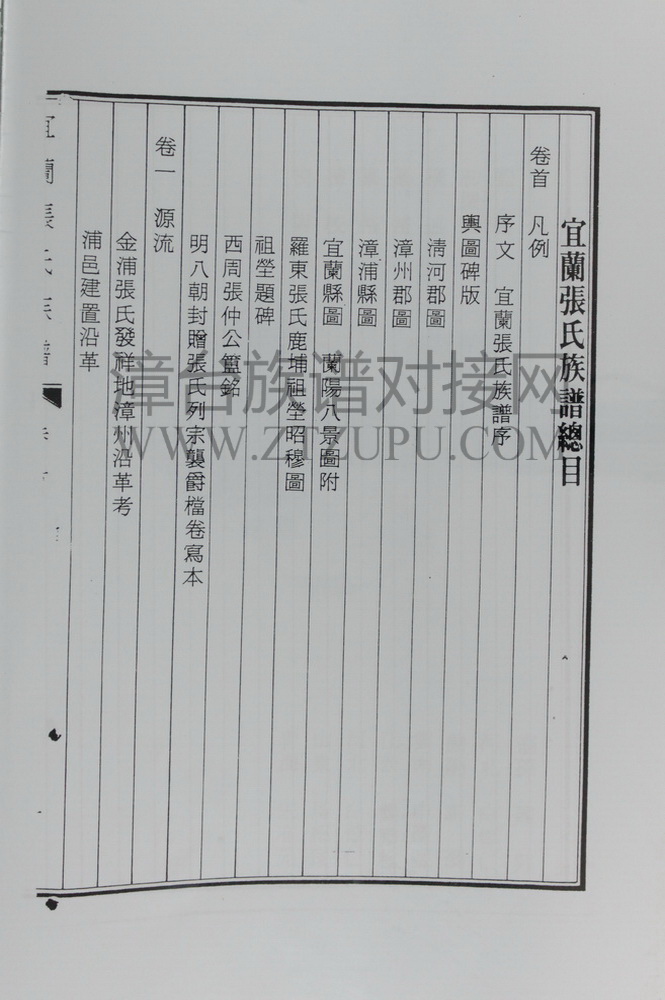 宜蘭張氏族譜總目
卷首 凡例
序文 宜蘭張氏族譜序
輿圖碑版
清河郡圖
漳州郡圖
漳浦縣圖
宜蘭縣圖 蘭陽八景圖附
羅東張氏鹿埔祖塋昭穆圖
祖塋題碑
西周張仲公簠銘
明八朝封贈張氏列宗襲爵檔卷寫本
卷一 源流
金浦張氏發祥地漳州沿革考
浦邑建置沿革
宜蘭張氏族譜
漳台族谱对接网
WWW.ZTZUPU.COM